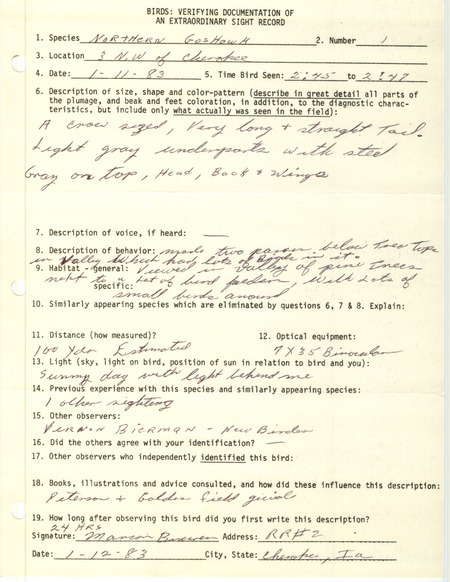 BIRDS: VERIFYING DOCUMENTATION OF
AN EXTRAORDINARY SIGHT RECORD
1. Species Northern Goshawk 2. Number 1
3. Location 3 N.W of Cherokee
4. Date: 1-11-83 5. Time Bird Seen: 2:45 to 2:47
6. Description of size, shape and color-pattern (describe in great detail all parts of
the plumage, and beak and feet coloration, in addition, to the diagnostic charac-
teristics, but include only what actually was seen in the field):
A crow sized, Very long + straight Tail.
Light gray underparts with steel
Gray on top, Head, Back + Wings
7. Description of voice, if heard: —
8. Description of behavior: made two passes below tree tops
in Valley which had lots of Birds in it.
9. Habitat - general: Viewed in Valley of pine trees
next to a lot of bird feeders, With Lots of
specific: small birds around
10. Similarly appearing species which are eliminated by questions 6, 7 & 8. Explain:
11. Distance (how measured)? 12. Optical equipment:
100 Yds Estimated 7X35 Binocular
13. Light (sky, light on bird, position of sun in relation to bird and you):
Sunny day with light behind me
14. Previous experience with this species and similarly appearing species:
1 other sighting
15. Other observers:
Vernon Bierman - New Birder
16. Did the others agree with your identification? —
17. Other observers who independently identified this bird:
18. Books, illustrations and advice consulted, and how did these influence this description:
Peterson + Golden field guide
19. How long after observing this bird did you first write this description?
24 HRS
Signature: Address: RR#2
Date: 1-12-83 City, State: Cherokee, Ia